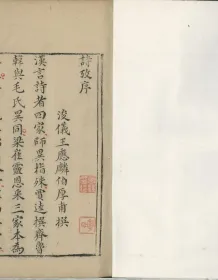 詩攷序
浚儀王應麟伯厚甫撰
漢言詩者四家師異指殊賈逵撰齊魯
韓與毛氏異同梁崔靈恩采三家本為